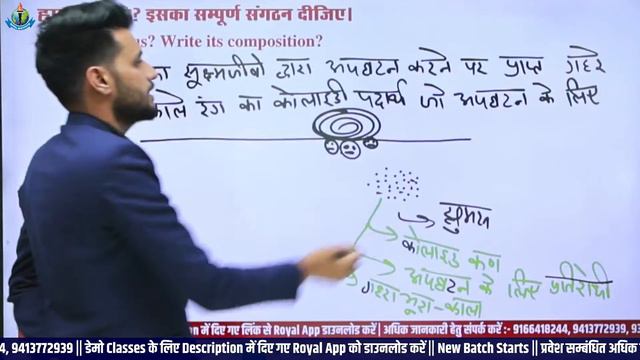 ? इसका सम्पूर्ण संगठन दीजिए।
us? Write its composition?
का सूक्ष्मजीवो द्वारा अपघटन करने पर प्राप्त गहरे
काले रंग का कोलाइडी पदार्थ जो अपघटन के लिए
ह्युमस
कोलाइड कण
अपघटन के लिए प्रतिरोधी
गहरा भूरा-काला
n में दिए गए लिंक से Royal App डाउनलोड करें | अधिक जानकारी हेतु संपर्क करें :- 9166418244, 9413772939, 93
4, 9413772939 || डेमो Classes के लिए Description में दिए गए Royal App को डाउनलोड करें || New Batch Starts || प्रवेश सम्बंधित अधिक